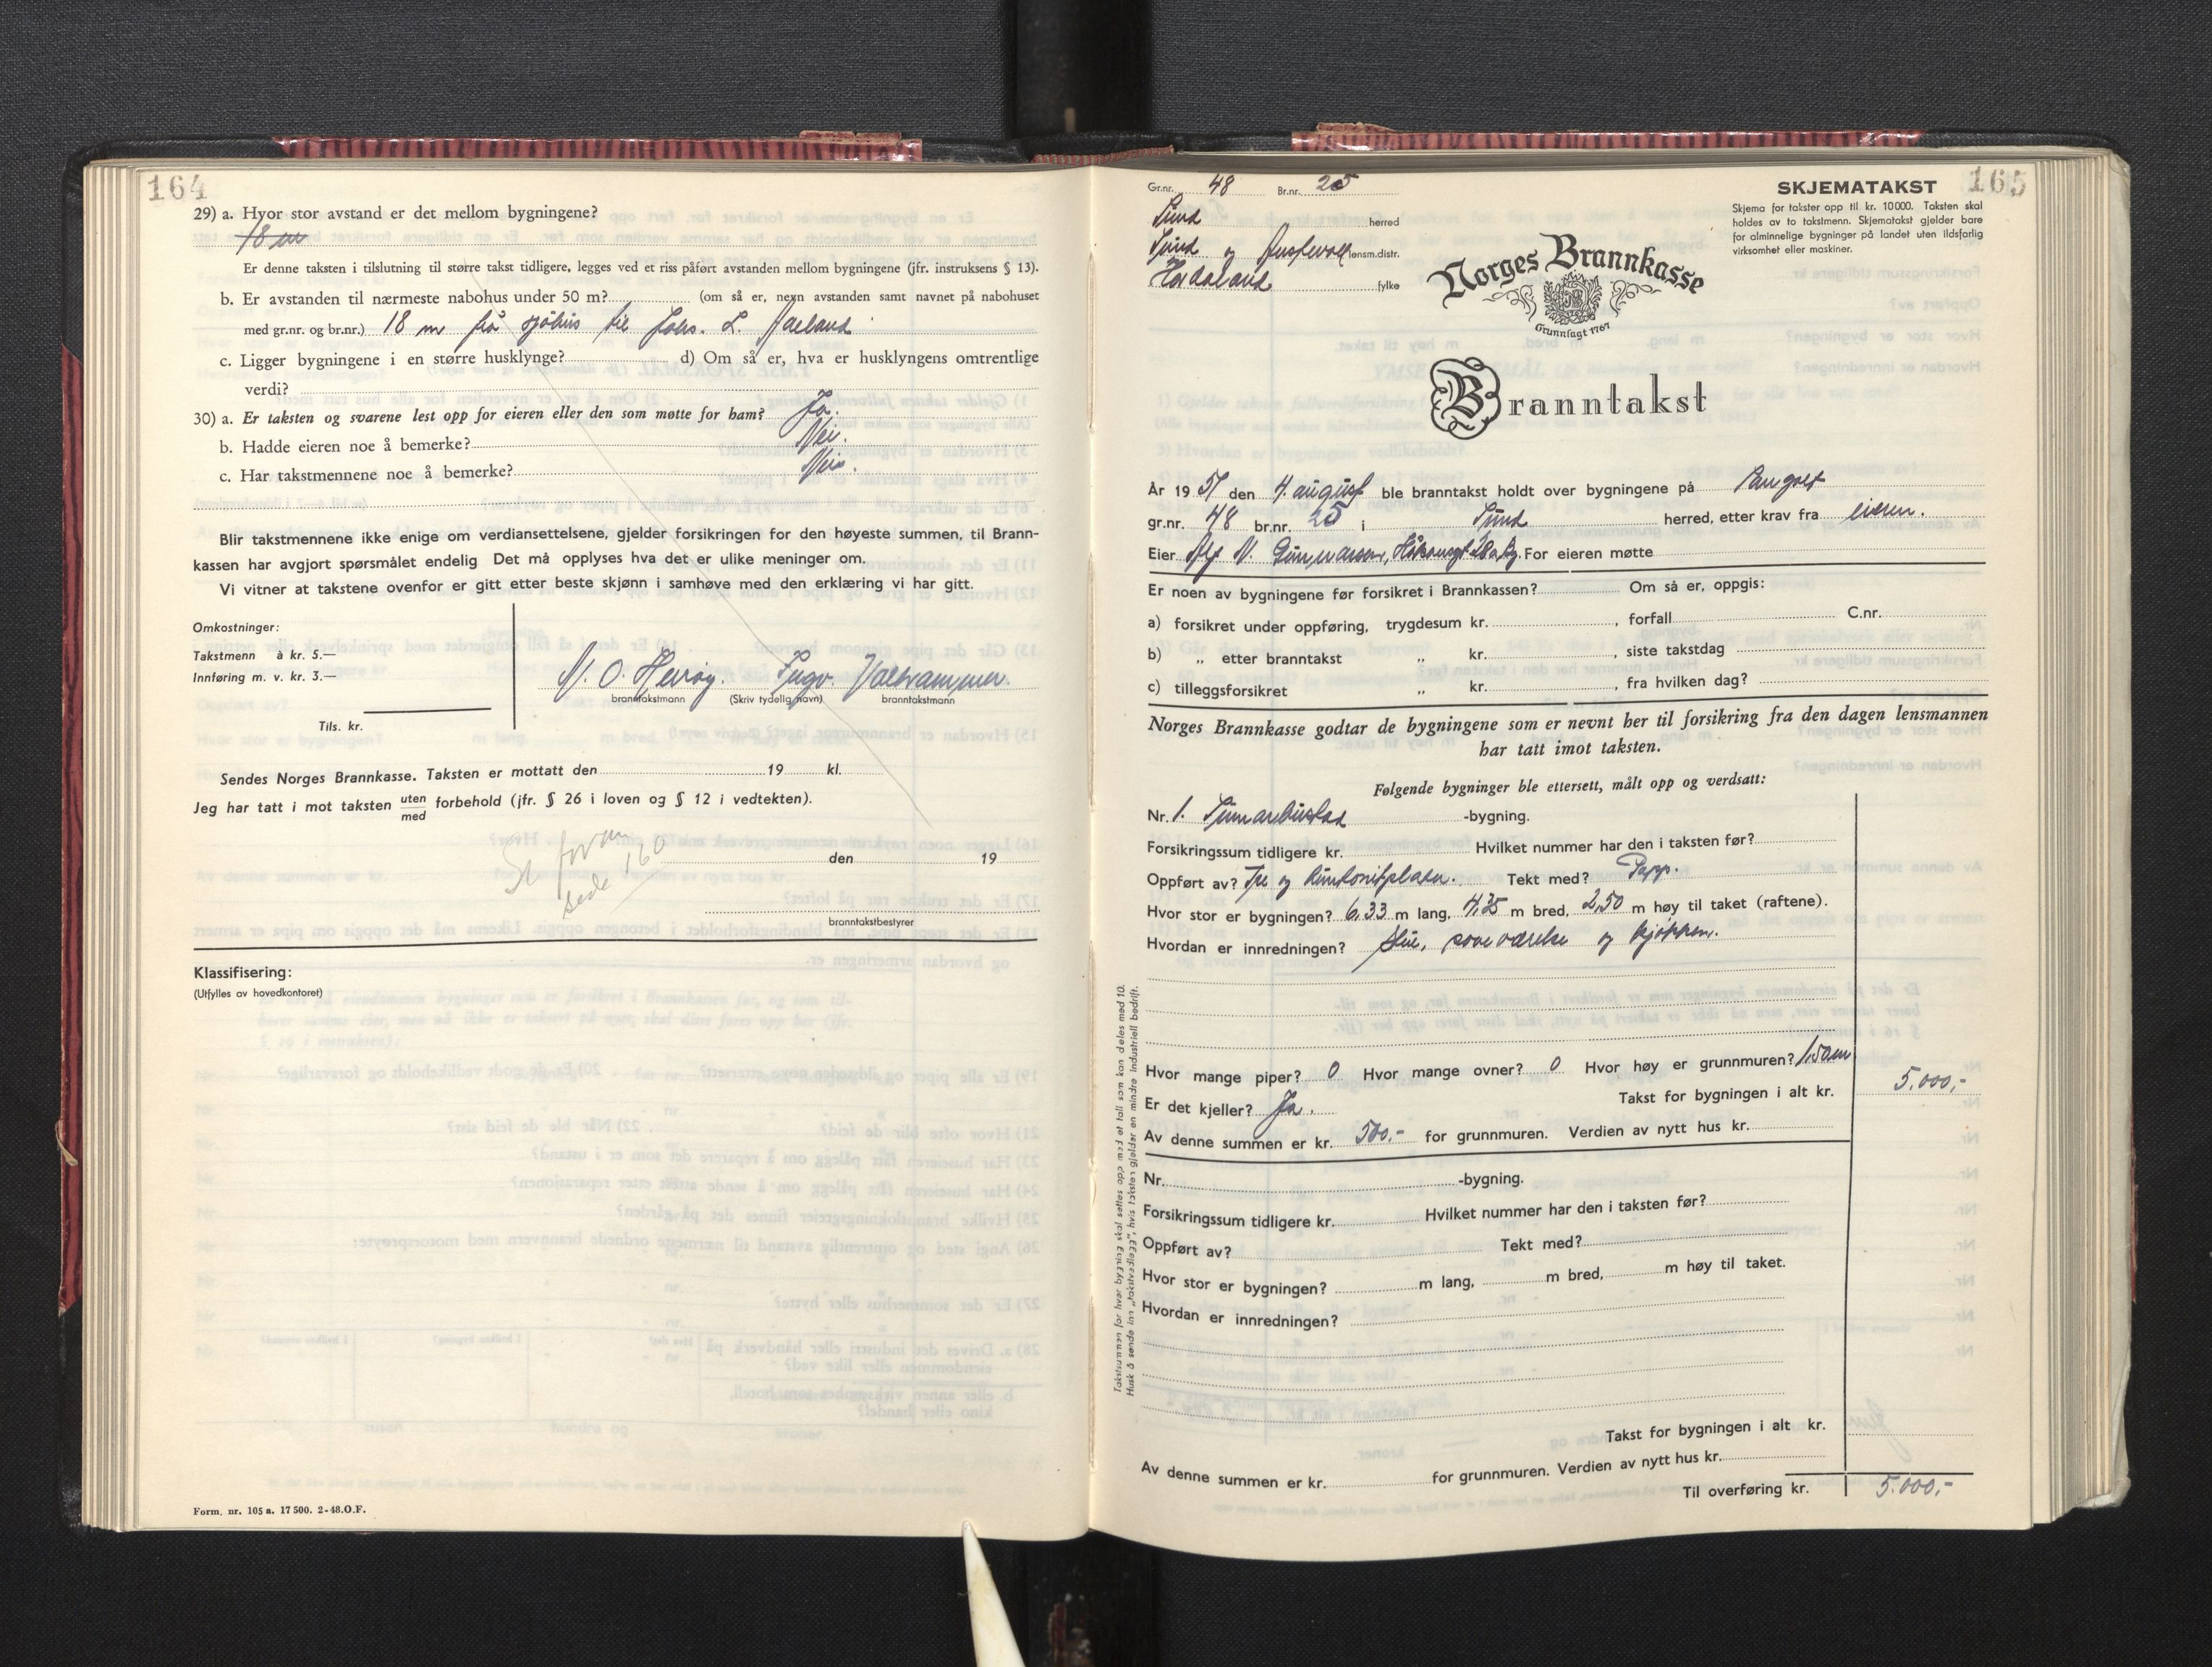 164
29) a. Hvor stor avstand er det mellom bygningene?
18 m
Er denne taksten i tilslutning til større takst tidligere, legges ved et riss påført avstanden mellom bygningene (jfr. instruksens § 13).
b. Er avstanden til nærmeste nabohus under 50 m? (om så er, nevn avstanden samt navnet på nabohuset
med gr.nr. og br.nr.) 18 m frå sjøhus til Johs. L.
c. Ligger bygningene i en større husklynge? d) Om så er, hva er husklyngens omtrentlige
verdi?
30) a. Er taksten og svarene lest opp for eieren eller den som møtte for ham? Ja.
b. Hadde eieren noe å bemerke? Nei.
c. Har takstmennene noe å bemerke? Nei.
Blir takstmennene ikke enige om verdiansettelsene, gjelder forsikringen for den høyeste summen, til Brann-
kassen har avgjort spørsmålet endelig Det må opplyses hva det er ulike meninger om.
Vi vitner at takstene ovenfor er gitt etter beste skjønn i samhøve med den erklæring vi har gitt.
Omkostninger:
Takstmenn à kr. 5.—
Innføring m. v. kr. 3.—
Tils. kr.
N. O. Heirøy. Ingv. Valhammer.
branntakstmann (Skriv tydelig navn) branntakstmann
Sendes Norges Brannkasse. Taksten er mottatt den 19 kl.
Jeg har tatt i mot taksten uten
med forbehold (jfr. § 26 i loven og § 12 i vedtekten).
Se foran
side 160
den 19
branntakstbestyrer
Klassifisering:
(Utfylles av hovedkontoret)
Form. nr. 105 a. 17 500. 2-48. O.F.
165
Gr.nr. 48 Br.nr. 25
Sund herred
Sund og Austevoll lensm.distr.
Hordaland fylke
SKJEMATAKST
Skjema for takster opp til kr. 10 000. Taksten skal
holdes av to takstmenn. Skjematakst gjelder bare
for alminnelige bygninger på landet uten ildsfarlig
virksomhet eller maskiner.
Norges Brannkasse
Grunnlagt 1767
Branntakst
År 1951 den 4. august ble branntakst holdt over bygningene på
gr.nr. 48 br.nr. 25 i Sund herred, etter krav fra eieren.
Eier Alf N. Gunnarson, For eieren møtte
Er noen av bygningene før forsikret i Brannkassen? Om så er, oppgis:
a) forsikret under oppføring, trygdesum kr. , forfall C.nr.
b) „ etter branntakst „ kr. , siste takstdag
c) tilleggsforsikret „ kr. , fra hvilken dag?
Norges Brannkasse godtar de bygningene som er nevnt her til forsikring fra den dagen lensmannen
har tatt imot taksten.
Følgende bygninger ble ettersett, målt opp og verdsatt:
Nr. 1. Sumarbustad -bygning.
Forsikringssum tidligere kr. Hvilket nummer har den i taksten før?
Oppført av? Tre og huntonitplater. Tekt med? Papp.
Hvor stor er bygningen? 6,33 m lang, 4,35 m bred, 2,50 m høy til taket (raftene).
Hvordan er innredningen? Stue, soveværelse og kjøkken.
Hvor mange piper? 0 Hvor mange ovner? 0 Hvor høy er grunnmuren?
Er det kjeller? Ja. Takst for bygningen i alt kr. 5.000,-
Av denne summen er kr. 500,- for grunnmuren. Verdien av nytt hus kr.
Nr. -bygning.
Forsikringssum tidligere kr. Hvilket nummer har den i taksten før?
Oppført av? Tekt med?
Hvor stor er bygningen? m lang, m bred, m høy til taket.
Hvordan er innredningen?
Takst for bygningen i alt kr.
Av denne summen er kr. for grunnmuren. Verdien av nytt hus kr.
Til overføring kr. 5.000,-
Takstsummen for hver bygning skal settes opp med et tall som kan deles med 10.
Husk å sende inn „takstvedlegg”, hvis taksten gjelder en mindre industriell bedrift.